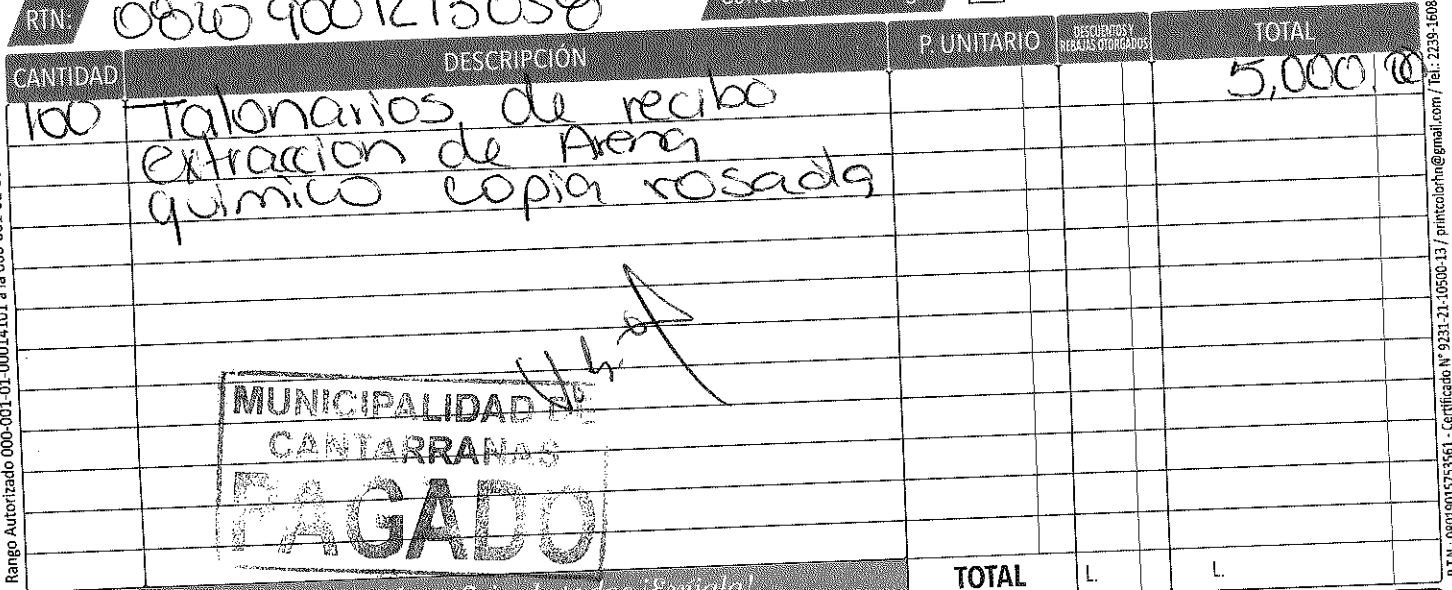 RTN:
CANTIDAD DESCRIPCIÓN P. UNITARIO DESCUENTOS Y REBAJAS OTORGADOS TOTAL
100 Talonarios de recibo 5,000.00
extraccion de Arena
quimico copia rosada
MUNICIPALIDAD DE
CANTARRANAS
PAGADO
TOTAL L. L.
Rango Autorizado 000-001-01-00014101 a la
/ Tel.: 2239-1608
- Certificado N° 9231-21-10500-13 / printcolorhn@gmail.com